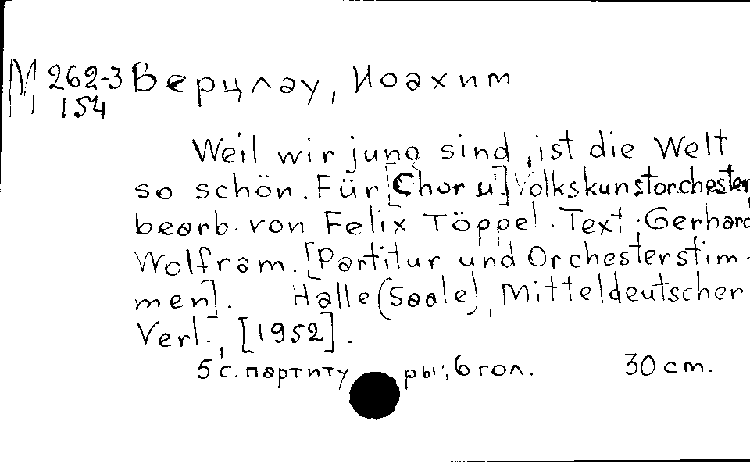 М 262-3 Верцлау, Иоахим
154
Weil wir jung sind, ist die Welt
so schön. Für [Chor u] Volkskunstorchester
bearb. von Felix Töppel. Text: Gerhard
Wolfram. [Partitur und Orchesterstim-
men]. Halle (Saale), Mitteldeutscher
Verl., [1952].
5 с. партитуры; 6 гол. 30 cm.